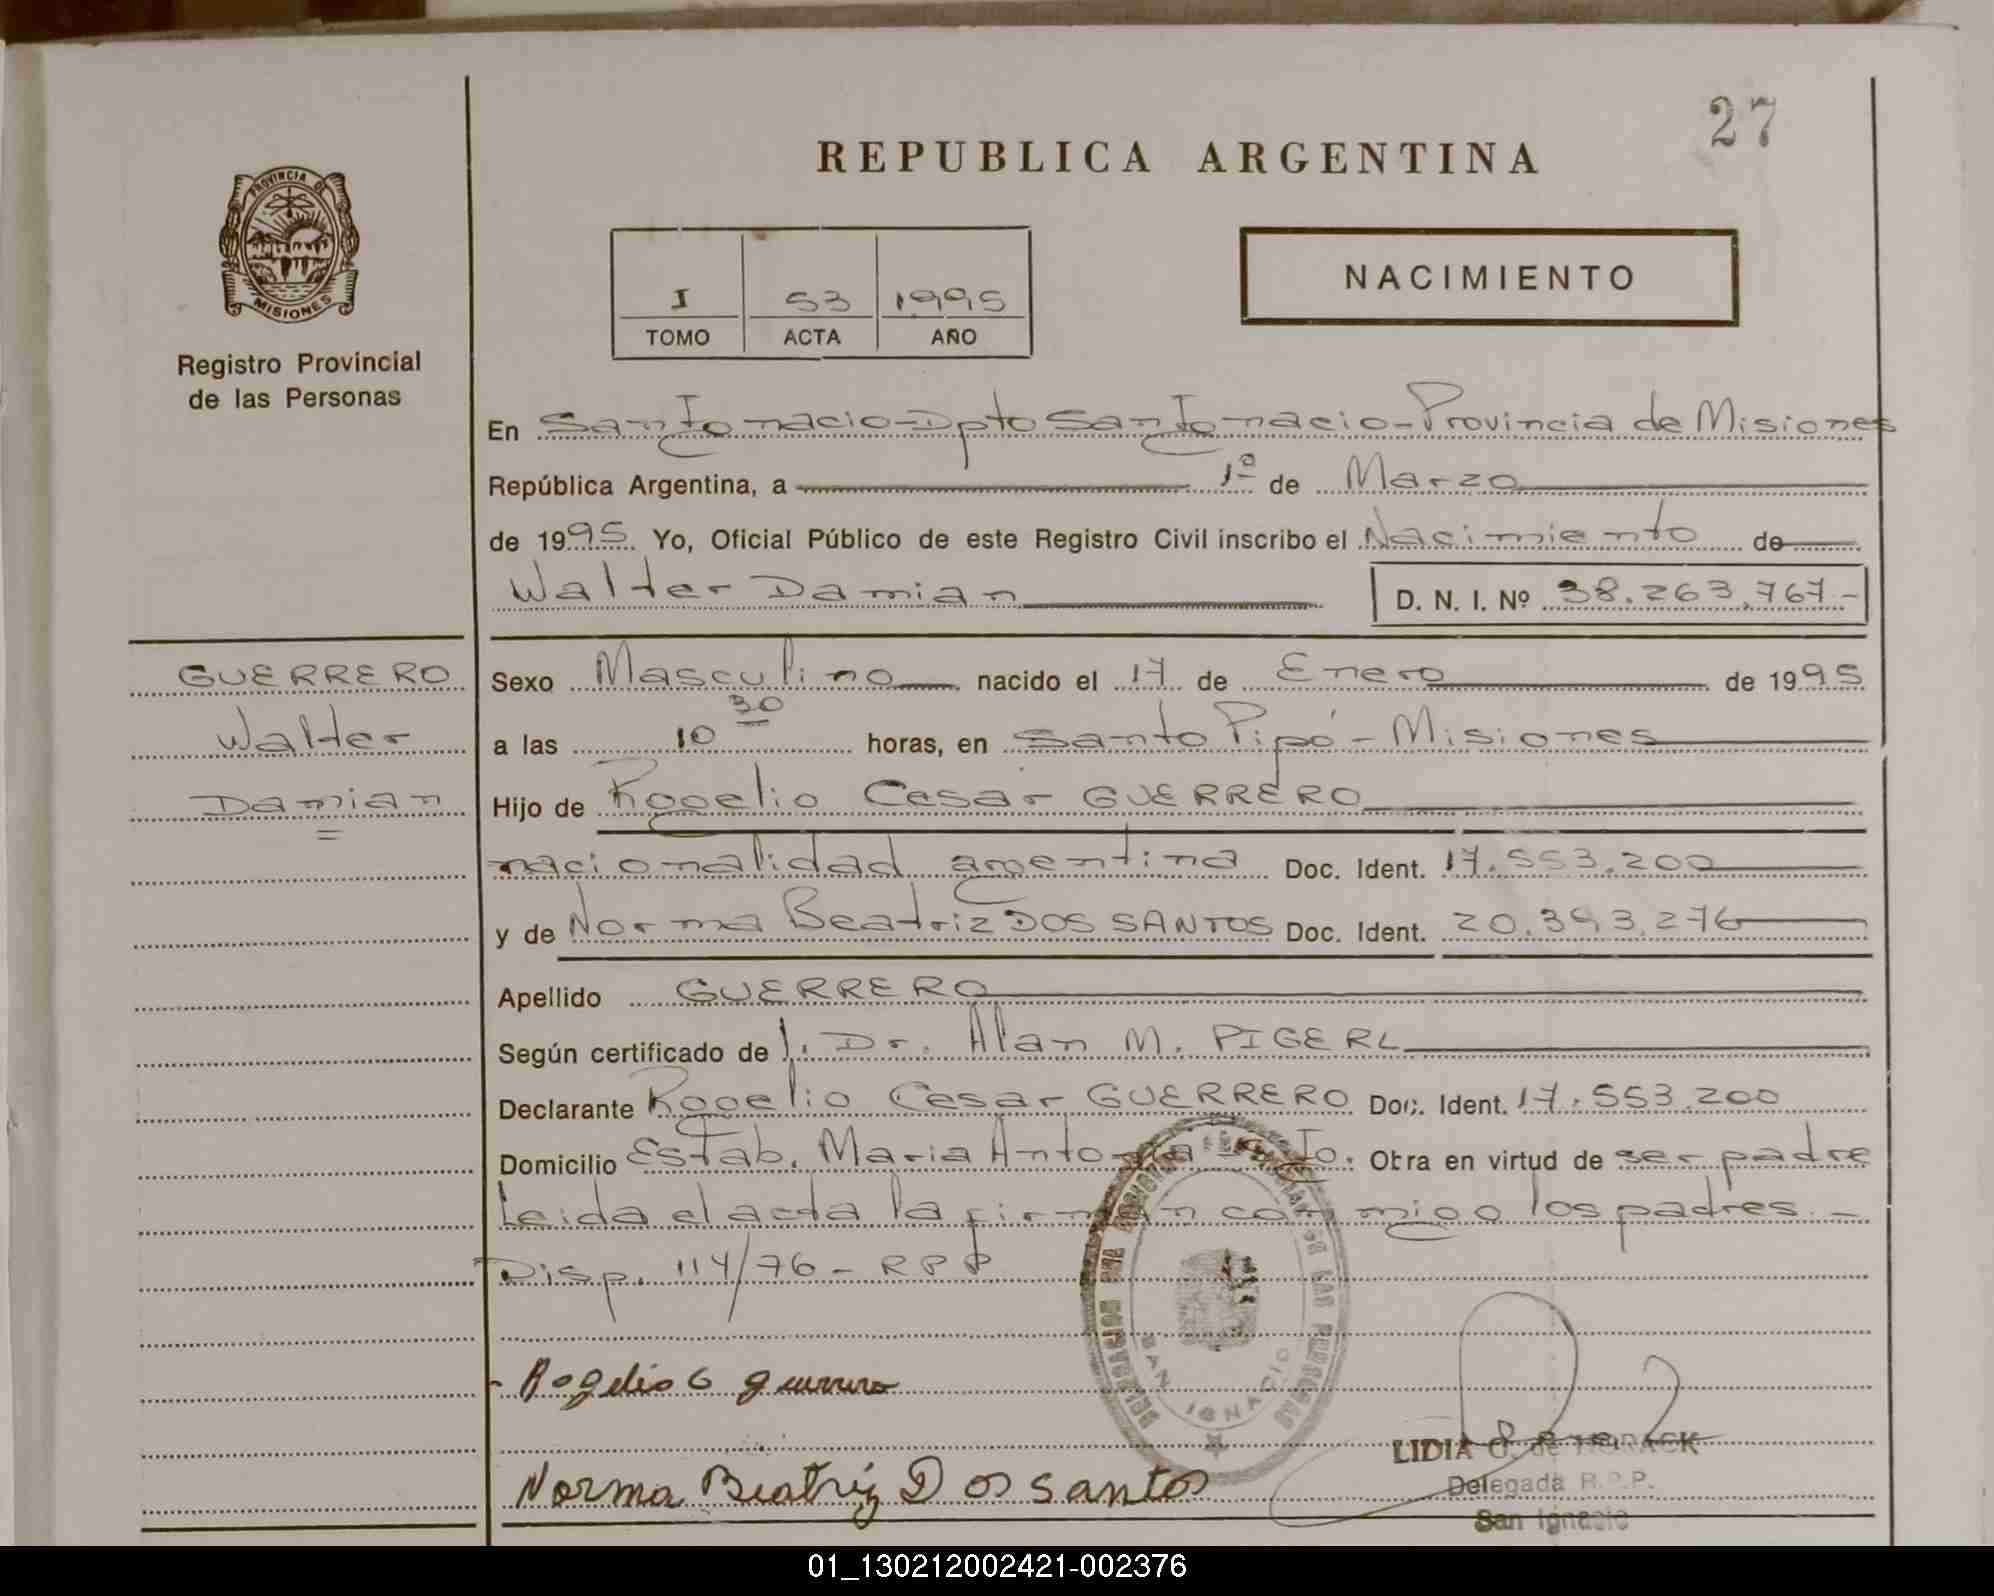 27
REPUBLICA ARGENTINA
PROVINCIA DE
MISIONES
Registro Provincial
de las Personas
I 53 1995
TOMO ACTA AÑO
NACIMIENTO
En San Ignacio-Dpto San Ignacio-Provincia de Misiones
República Argentina, a 1º de Marzo
de 1995 Yo, Oficial Público de este Registro Civil inscribo el Nacimiento de
Walter Damian D. N. I. Nº 38.263.767.-
GUERRERO
Walter
Damian
Sexo Masculino nacido el 17 de Enero de 1995
a las 10 30 horas, en Santo Pipó - Misiones
Hijo de Rogelio Cesar GUERRERO
nacionalidad argentina Doc. Ident. 17.553.200
y de Norma Beatriz DOS SANTOS Doc. Ident. 20.393.276
Apellido GUERRERO
Según certificado de Dr. Alan M. PIGERL
Declarante Rogelio Cesar GUERRERO Doc. Ident. 17.553.200
Domicilio Estab. Maria Antonia Obra en virtud de ser padre
Leida el acta la firman conmigo los padres.-
Disp. 114/76 - RPP
Rogelio C guerrero
Norma Beatriz Dos santos
SAN IGNACIO
LIDIA
Delegada R.P.P.
San Ignacio
01_130212002421-002376